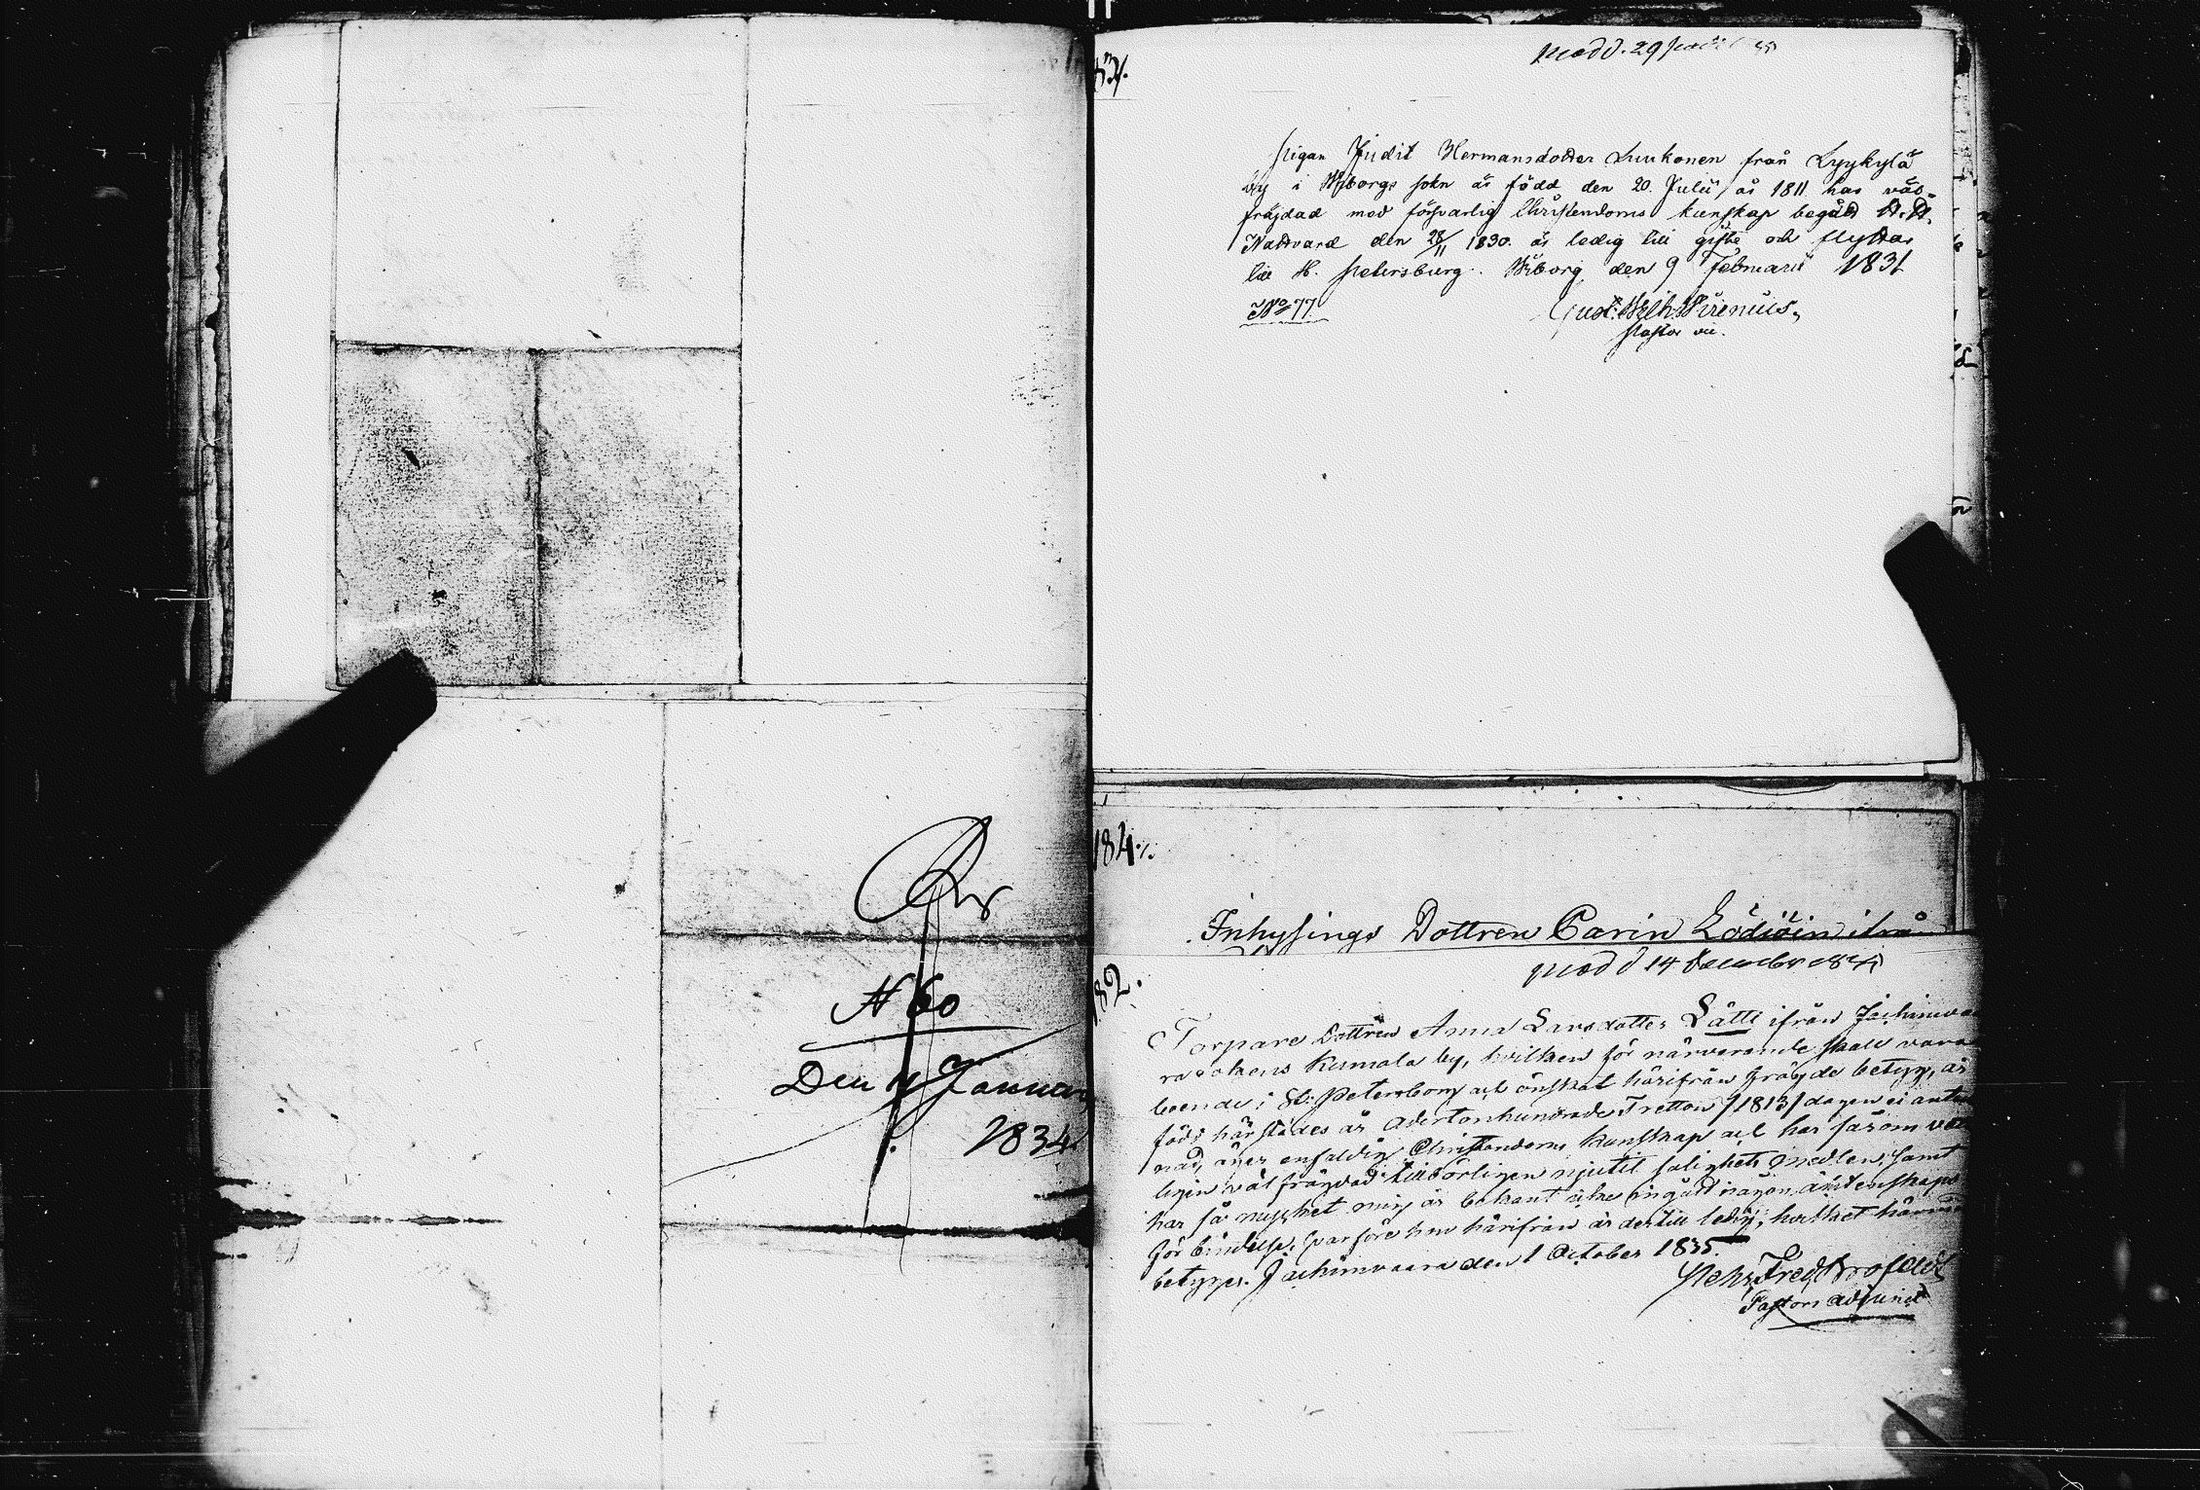 N 60
Den 4 Januari
1834
Pigan Judit Hermansdotter Luukonen från Lyykylä
by i Wiborgs sokn är född den 20. Julii år 1811 har väl-
frägdad med försvarlig Christendoms kunskap begått H. H.
Nattvard den 28/11 1830. är ledig till gifte och flyttar
till St. Petersburg. Wiborg den 9 Februarii 1831
No 77
Gust. Wilh. Wirenius,
Pastor vic.
184.
Inhysings Dottren Carin Lödiöin ifrån
182.
14 December 1835
Torpare Dottren Anna Larsdotter Lätti ifrån Jachimva-
ra Sokens Kumola by, hvilken för närvarande skall vara
boende i St. Petersborg och önskat härifrån frägde betyg, är
född härstädes år Adertonhundrade Tretton /1813/ dagen ej anteck-
nad, äger enfaldig Christendoms kunskap och har såsom
väl frägdad tillbörligen njutit salighets medlen, samt
har så mycket mig är bekant icke ingått någon äktenskaps
förbindelse, hvarföre hon härifrån är dertill ledig; hvilket
betygar. Jachimvaara den 1 October 1835.
Pastors adjunct